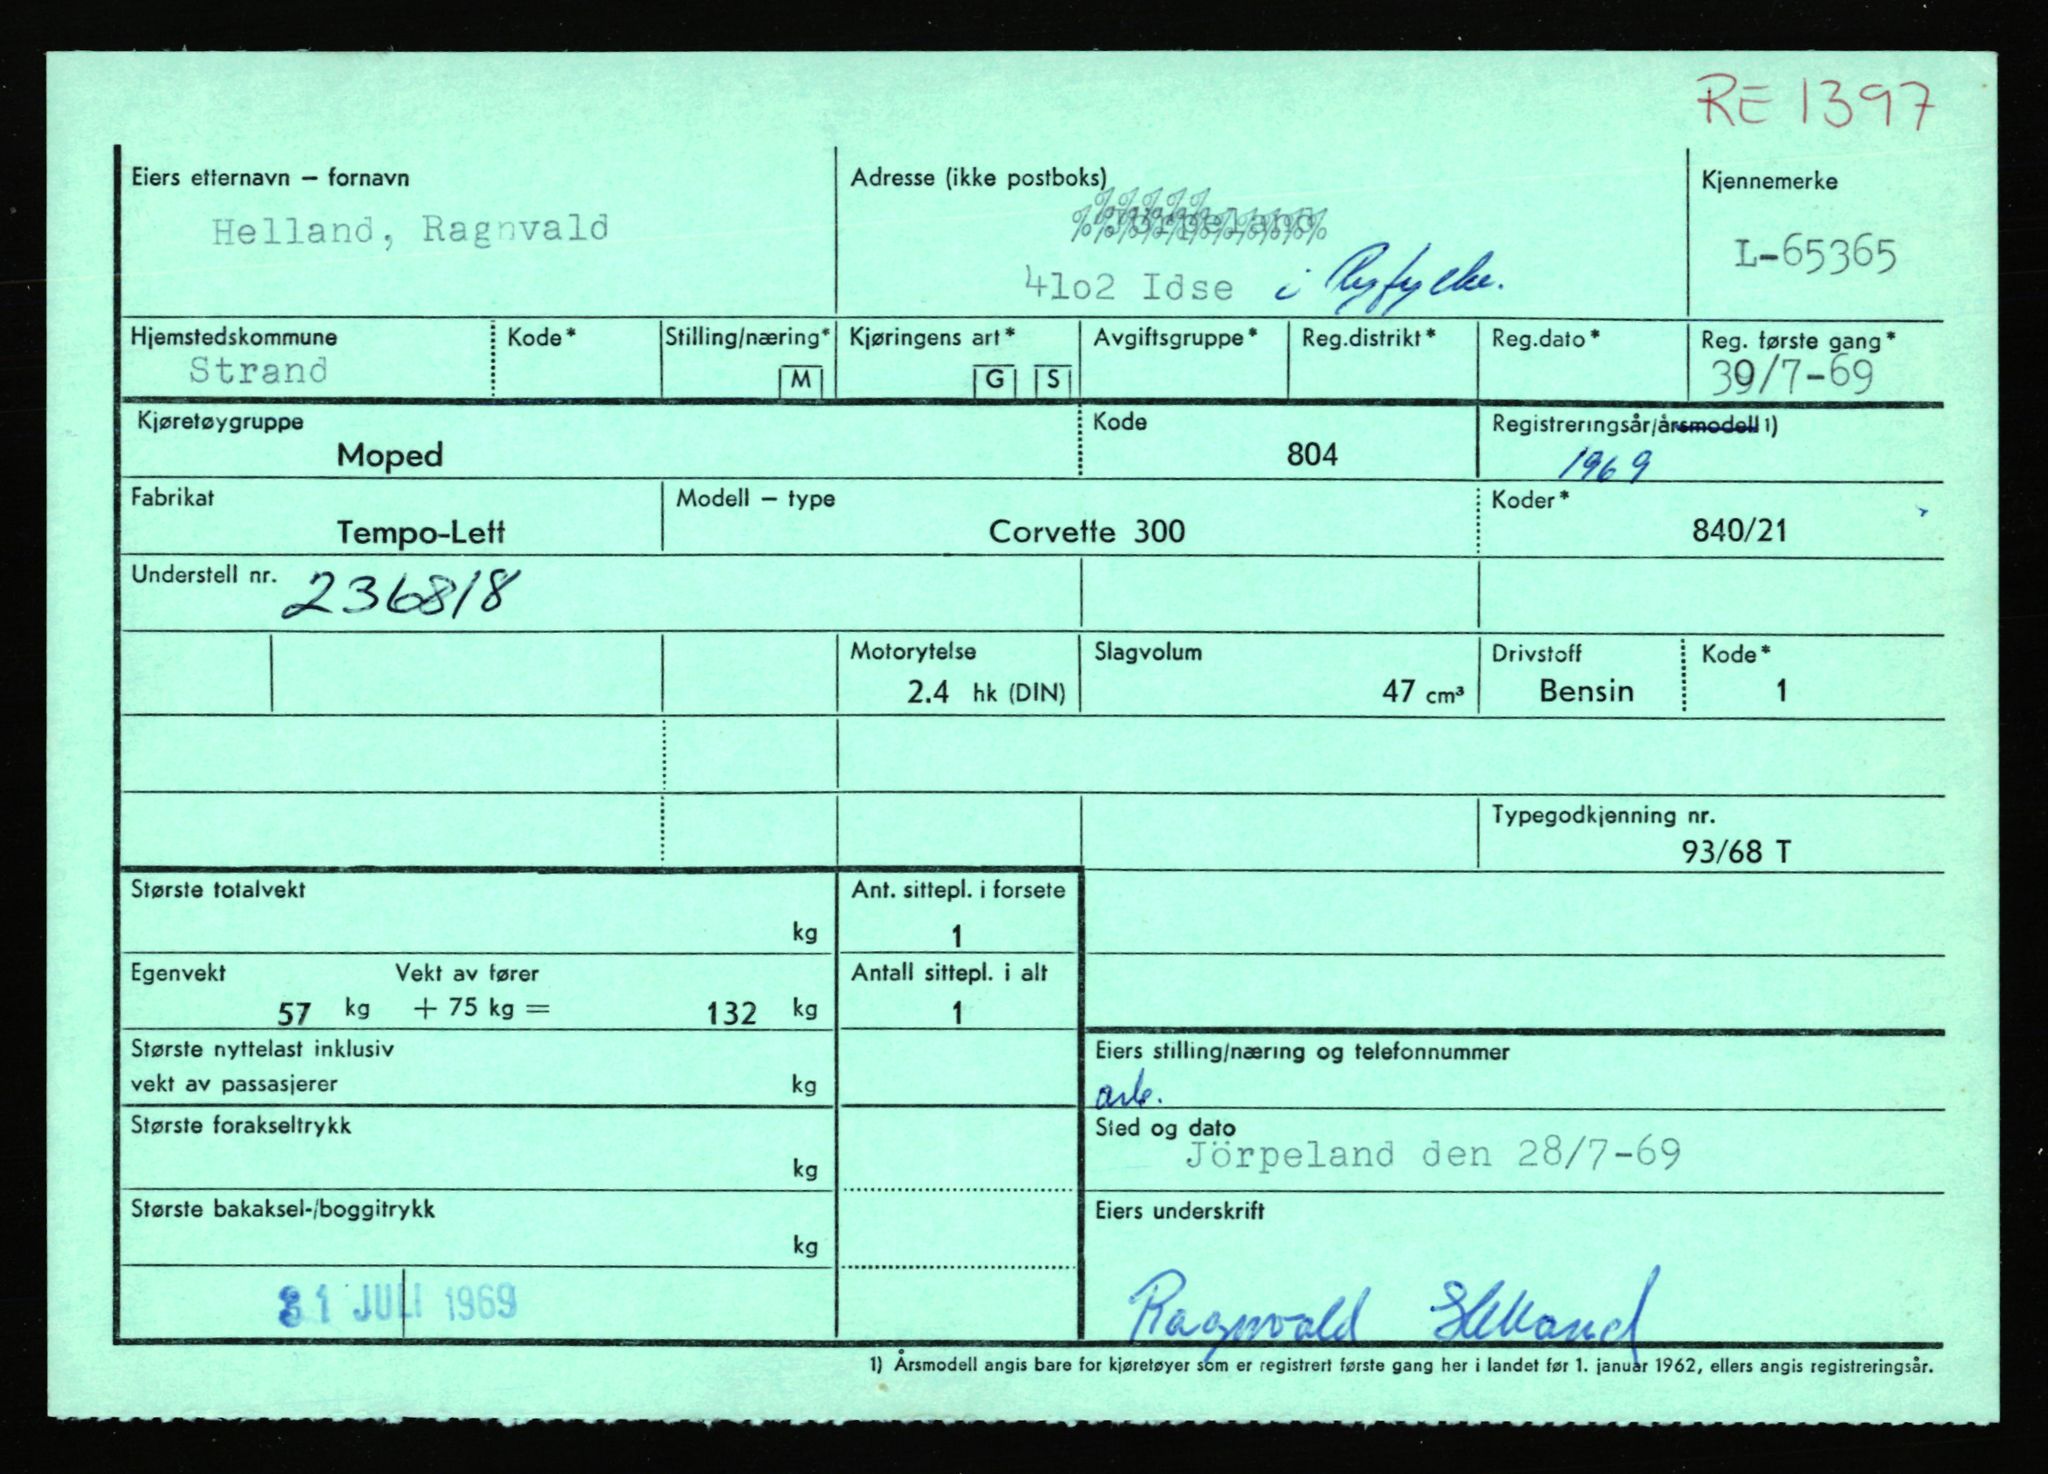 RE 1397
Eiers etternavn – fornavn
Helland, Ragnvald
Adresse (ikke postboks)
Jörpeland
4102 Idse i Ryfylke.
Kjennemerke
L-65365
Hjemstedskommune
Strand
Kode*
Stilling/næring*
M
Kjøringens art*
G S
Avgiftsgruppe*
Reg.distrikt*
Reg.dato*
Reg. første gang*
30/7-69
Kjøretøygruppe
Moped
Kode
804
Registreringsår/årsmodell 1)
1969
Fabrikat
Tempo-Lett
Modell – type
Corvette 300
Koder*
840/21
Understell nr. 236818
Motorytelse
2.4 hk (DIN)
Slagvolum
47 cm³
Drivstoff
Bensin
Kode*
1
Typegodkjenning nr.
93/68 T
Største totalvekt
kg
Ant. sittepl. i forsete
1
Egenvekt Vekt av fører
57 kg + 75 kg = 132 kg
Antall sittepl. i alt
1
Største nyttelast inklusiv
vekt av passasjerer kg
Største forakseltrykk
kg
Største bakaksel-/boggitrykk
kg
31 JULI 1969
Eiers stilling/næring og telefonnummer
arb.
Sted og dato
Jörpeland den 28/7-69
Eiers underskrift
Ragnvald Helland
1) Årsmodell angis bare for kjøretøyer som er registrert første gang her i landet før 1. januar 1962, ellers angis registreringsår.